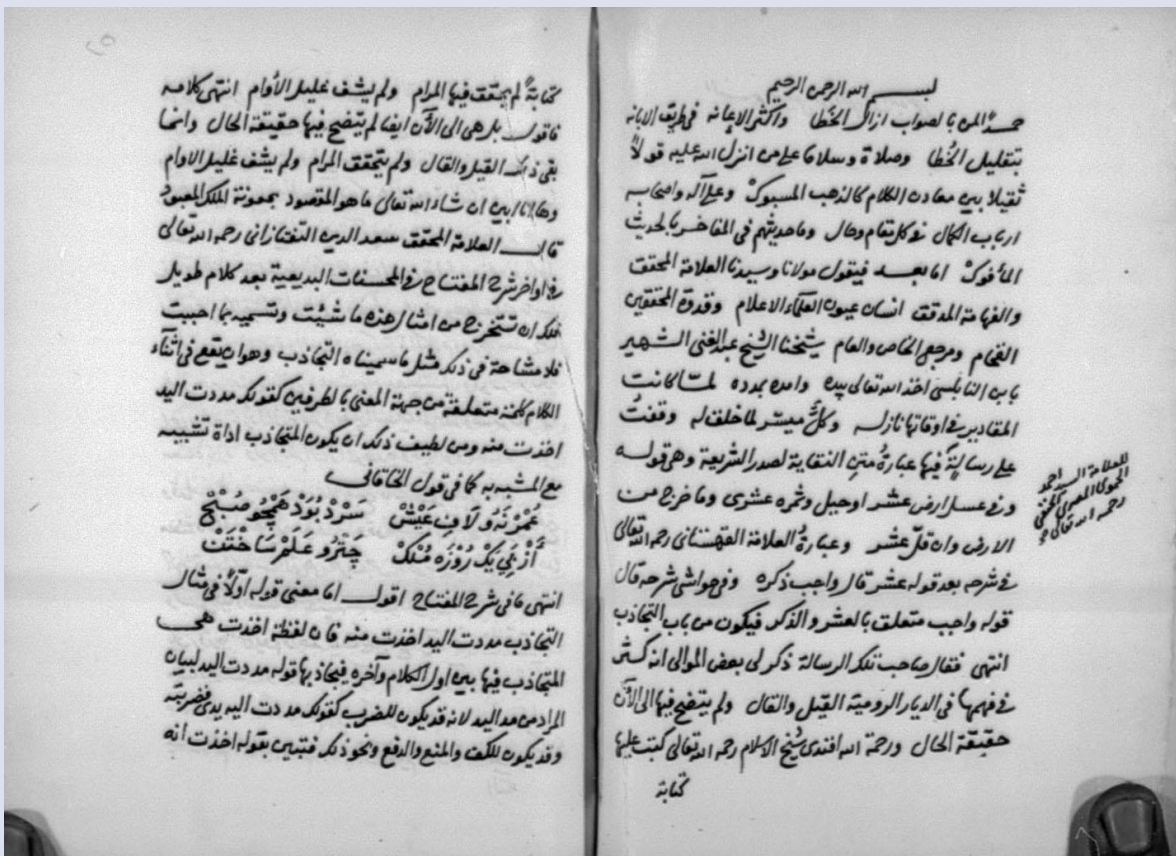 بسم الله الرحمن الرحيم
حمدًا لمن بالصواب ازال الخَطا واكثر الاعانه في طريق الابانه
بتقليل الخُطا وصلاة وسلاما على من انزل الله عليه قولاً
ثقيلا بين معادن الكلام كالذهب المسبوك وعلى آله واصحابه
ارباب الكمال في كل مقام وحال وما حديثهم في المفاخر بالحديث
المأفوك اما بعد فيقول مولانا وسيدنا العلامة المحقق
والفهامة المدقق انسان عيون العلماء الاعلام وقدوة المحققين
الفخام ومرجع الخاص والعام شيخنا الشيخ عبد الغني الشهير
بابن النابلسي اخذ الله تعالى بيده وامده بمدده لما كانت
المقادير في اوقاتها نازله وكلٌّ ميسر لما خلق له وقفتُ
على رسالةٍ فيها عبارةُ متن النقاية لصدر الشريعة وهي قوله
وفي عسل ارض عشر او جبل وثمره عشرى وما خرج من
الارض وان قلّ عشر وعبارةُ العلامة القهستاني رحمه الله تعالى
في شرحه بعد قوله عشر قال واجب ذكره وفي حواشي شرحه قال
قوله واجب متعلق بالعشر والذكر فيكون من باب التجاذب
انتهى فقال صاحب تلك الرسالة ذكر لي بعض الموالي انه كثر
في فهمها في الديار الرومية القيل والقال ولم يتضح فيها الى الآن
حقيقة الحال ورحمة الله افندى شيخ الاسلام رحمه الله تعالى كتب عليها
كتابة
للعلامة السيد احمد
الحموى المصرى الحنفي
رحمه الله تعالى
كتابةً لم يتحقق فيها المرام ولم يشف غليل الأوام انتهى كلامه
فاقول بل هي الى الآن ايضا لم يتضح فيها حقيقة الحال وانما
بقي ذلك القيل والقال ولم يتحقق المرام ولم يشف غليل الاوام
وها انا ابين ان شاء الله تعالى ما هو المقصود بمعونة الملك المعبود
قال العلامة المحقق سعد الدين التفتازاني رحمه الله تعالى
في اواخر شرح المفتاح في المحسنات البديعية بعد كلام طويل
فلك ان تستخرج من امثال هذه ما شئت وتسميه بما احببت
فلا مشاحة في ذلك مثل ما سميناه التجاذب وهو ان يقع في اثناء
الكلام كلمة متعلقة من جهة المعنى بالطرفين كقولك مددت اليد
اخذت منه ومن لطيف ذلك ان يكون المتجاذب اداة تشبيه
مع المشبه به كما في قول الخاقاني
عُمْرْ نَه ولَافِ عَيْشْ سَرْدْ بُوَدْ هَمْچُو صُبْحْ
اَزْ پَيِ يَكْ رُوزَه مُلْكْ چَتْرُو عَلَمْ سَاخْتَنْ
انتهى ما في شرح المفتاح اقول اما معنى قوله اوّلًا في مثال
التجاذب مددت اليد اخذت منه فان لفظة اخذت هي
المتجاذب فيها بين اول الكلام وآخره فيجاذبها قوله مددت اليد لبيان
المراد من مد اليد لانه قد يكون للضرب كقولك مددت اليه يدى فضربته
وقد يكون للكف والمنع والدفع ونحو ذلك فتبين بقوله اخذت انه